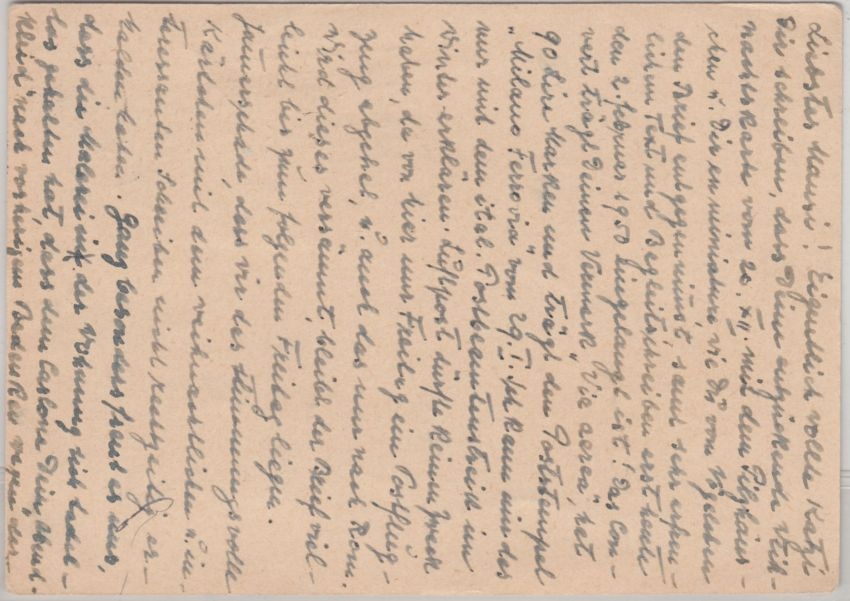 Liebster Mausi! Eigentlich wollte Katzi
Dir schreiben, dass Deine entzückende Weih-
nachtskarte vom 20. XII. mit dem Pilzhäus-
chen u. Dir en miniature, wie Du vom Vögelchen
den Brief entgegennimmst, samt sehr erfreu-
lichem Text und Begleitschreiben erst heute
den 2. Februar 1950 eingelangt ist! Das Cou-
vert trägt Deinen Vermerk "Via aerea", hat
90 Lire Marken und trägt den Poststempel
"Milano Ferrovia" vom 29. I. Ich kann mir das
nur mit dem ital. Postbeamtenstreik im
Winter erklären. Luftpost dürfte keinen Zweck
haben, da von hier nur Freitag ein Postflug-
zeug abgehet, u. auch das nur nach Rom.
Wird dieses versäumt, bleibt der Brief viel-
leicht bis zum folgenden Freitag liegen.
Jammerschade, dass wir das stimmungsvolle
Kärtchen mit dem weihnachtlichen u. in-
teressanten Schreiben nicht rechtzeitig er-
halten haben. Ganz besonders freut es uns,
dass die Malerei in der Wohnung sich
das gehalten hat, dass dem Carlone Dein Abend-
kleid nach vorherigen Bedenken wegen der